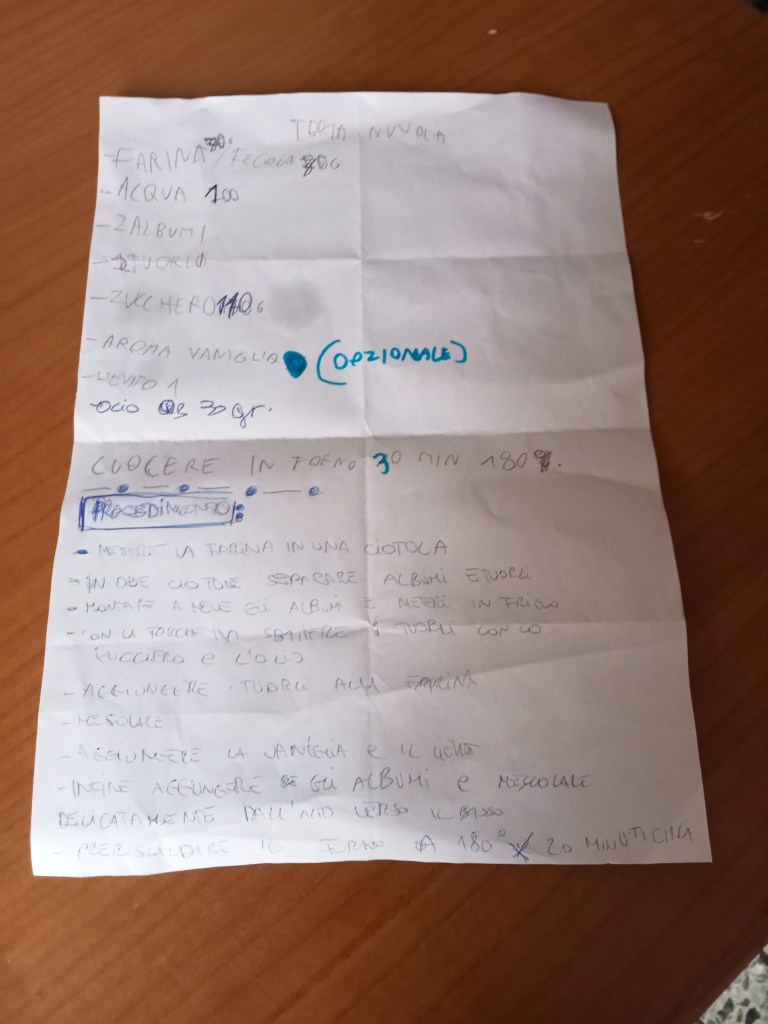 TORTA NUVOLA
- FARINA 30G / FECOLA G
- ACQUA 100
- 2 ALBUMI
- TUORLO
- ZUCCHERO 110G
- AROMA VANIGLIA (OPZIONALE)
- LIEVITO 1
- OLIO 30 gr.
CUOCERE IN FORNO 30 MIN 180°.
PROCEDIMENTO:
• METTERE LA FARINA IN UNA CIOTOLA
• IN DUE CIOTOLE SEPARARE ALBUMI E TUORLI
• MONTARE A NEVE GLI ALBUMI E METTERE IN FRIGO
- CON LA SBATTERE I TUORLI CON LO
ZUCCHERO E L'OLIO
- AGGIUNGERE I TUORLI ALLA FARINA
- MESCOLARE
- AGGIUNGERE LA VANIGLIA E IL LIEVITO
- INFINE AGGIUNGERE GLI ALBUMI E MESCOLALE
DELICATAMENTE DALL'ALTO VERSO IL BASSO
- PRERISCALDARE IL FORNO A 180° X 20 MINUTI CIRCA